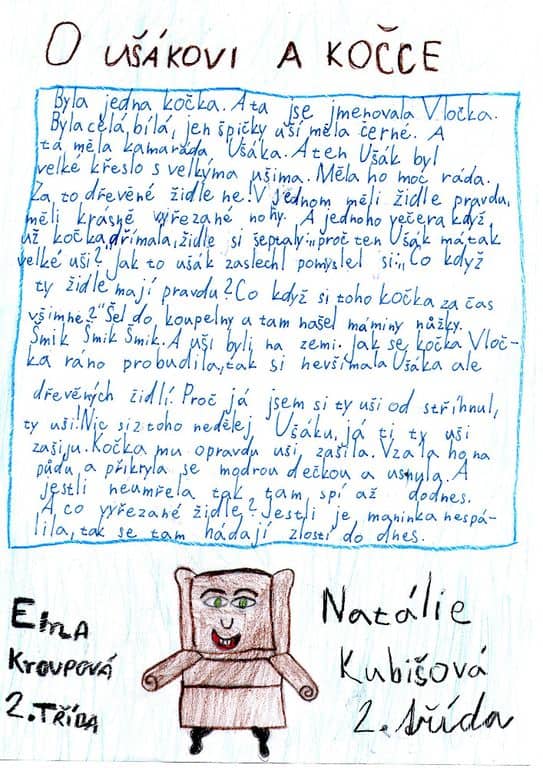 O UŠÁKOVI A KOČCE
Byla jedna kočka. A ta jse jmenovala Vločka.
Byla celá, bílá, jen špičky uší měla černé. A
ta měla kamaráda Ušáka. A ten Ušák byl
velké křeslo s velkýma ušima. Měla ho moc ráda.
Za to dřevěné židle ne! V jednom měli židle pravdu,
měli krásně vyřezané nohy. A jednoho večera když
už kočka dřímala, židle si šeptaly: „proč ten Ušák má tak
velké uši?" Jak to ušák zaslechl pomyslel si: „Co když
ty židle mají pravdu? Co když si toho kočka za čas
všimne?" Šel do koupelny a tam našel máminy nůžky.
Šmik Šmik Šmik. A uši byli na zemi. Jak se kočka Vloč-
ka ráno probudila, tak si nevšímala Ušáka ale
dřevěných židlí! Proč já jsem si ty uši od stříhnul,
ty uši! Nic si z toho nedělej Ušáku, já ti ty uši
zašiju. Kočka mu opravdu uši zašila. Vzala ho na
půdu a přikryla se modrou dečkou a usnula. A
jestli neumřela tak tam spí až dodnes.
A, co vyřezané židle? Jestli je maminka nespá-
lila, tak se tam hádají zlostí do dnes.
Ema
Kroupová
2. Třída
Natálie
Kubišová
2. třída